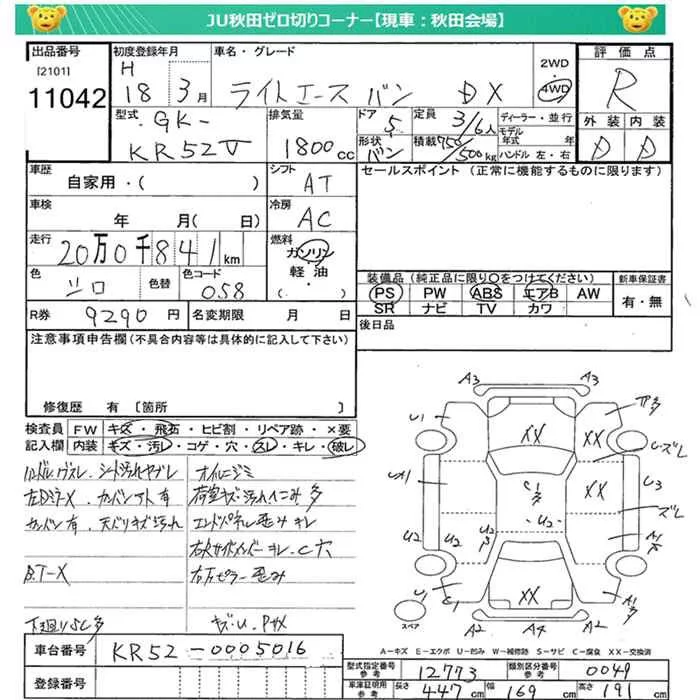 JU秋田ゼロ切りコーナー【現車：秋田会場】
出品番号
[2101]
11042
初度登録年月
H
18年 3月
車名・グレード
ライトエース バン DX
2WD
4WD
評価点
R
外装 内装
D D
型式
GK-
KR52V
排気量
1800cc
ドア
5
形状
バン
定員
3/6人
積載
750/500kg
ディーラー・並行
モデル
年式 年
ハンドル 左・右
車歴
自家用・( )
シフト
AT
セールスポイント (正常に機能するものに限ります)
車検
年 月( 日)
冷房
AC
走行
20万0千841km
燃料
ガソリン
軽油・
( )
色
シロ
色替
色コード
058
装備品 (純正品に限り○をつけてください)
PS PW ABS エアB AW
SR ナビ TV カワ
新車保証書
有・無
R券
9290円
名変期限 月 日
後日品
注意事項申告欄 (不具合内容等は具体的に記入して下さい)
修復歴 有 [箇所 ]
検査員
記入欄
FW キズ・飛石・ヒビ割・リペア跡・×要
内装 キズ・汚レ・コゲ・穴・スレ・キレ・破レ
ハンドルスレ シート汚れヤブレ
オイルニジミ
荷室キズ汚れヘコミ多
エンドパネル歪みキレ
B.T-X
右Rサイドメンバーキレ・C穴
右Rピラー歪み
下廻りSC多
A3
A3
U1
XX
XX
XX
U3
C1
多
U2
U2
U2
XX
C1
A1
多
A2
A4
A2
スペア
A－キズ E－エクボ U－凹み W－補修跡 S－サビ C－腐食 XX－交換済
車台番号
KR52-0005016
登録番号
型式指定番号
参考
12773
類別区分番号
参考
0049
車庫証明用
参考
長さ
447cm
幅
169cm
高さ
191cm